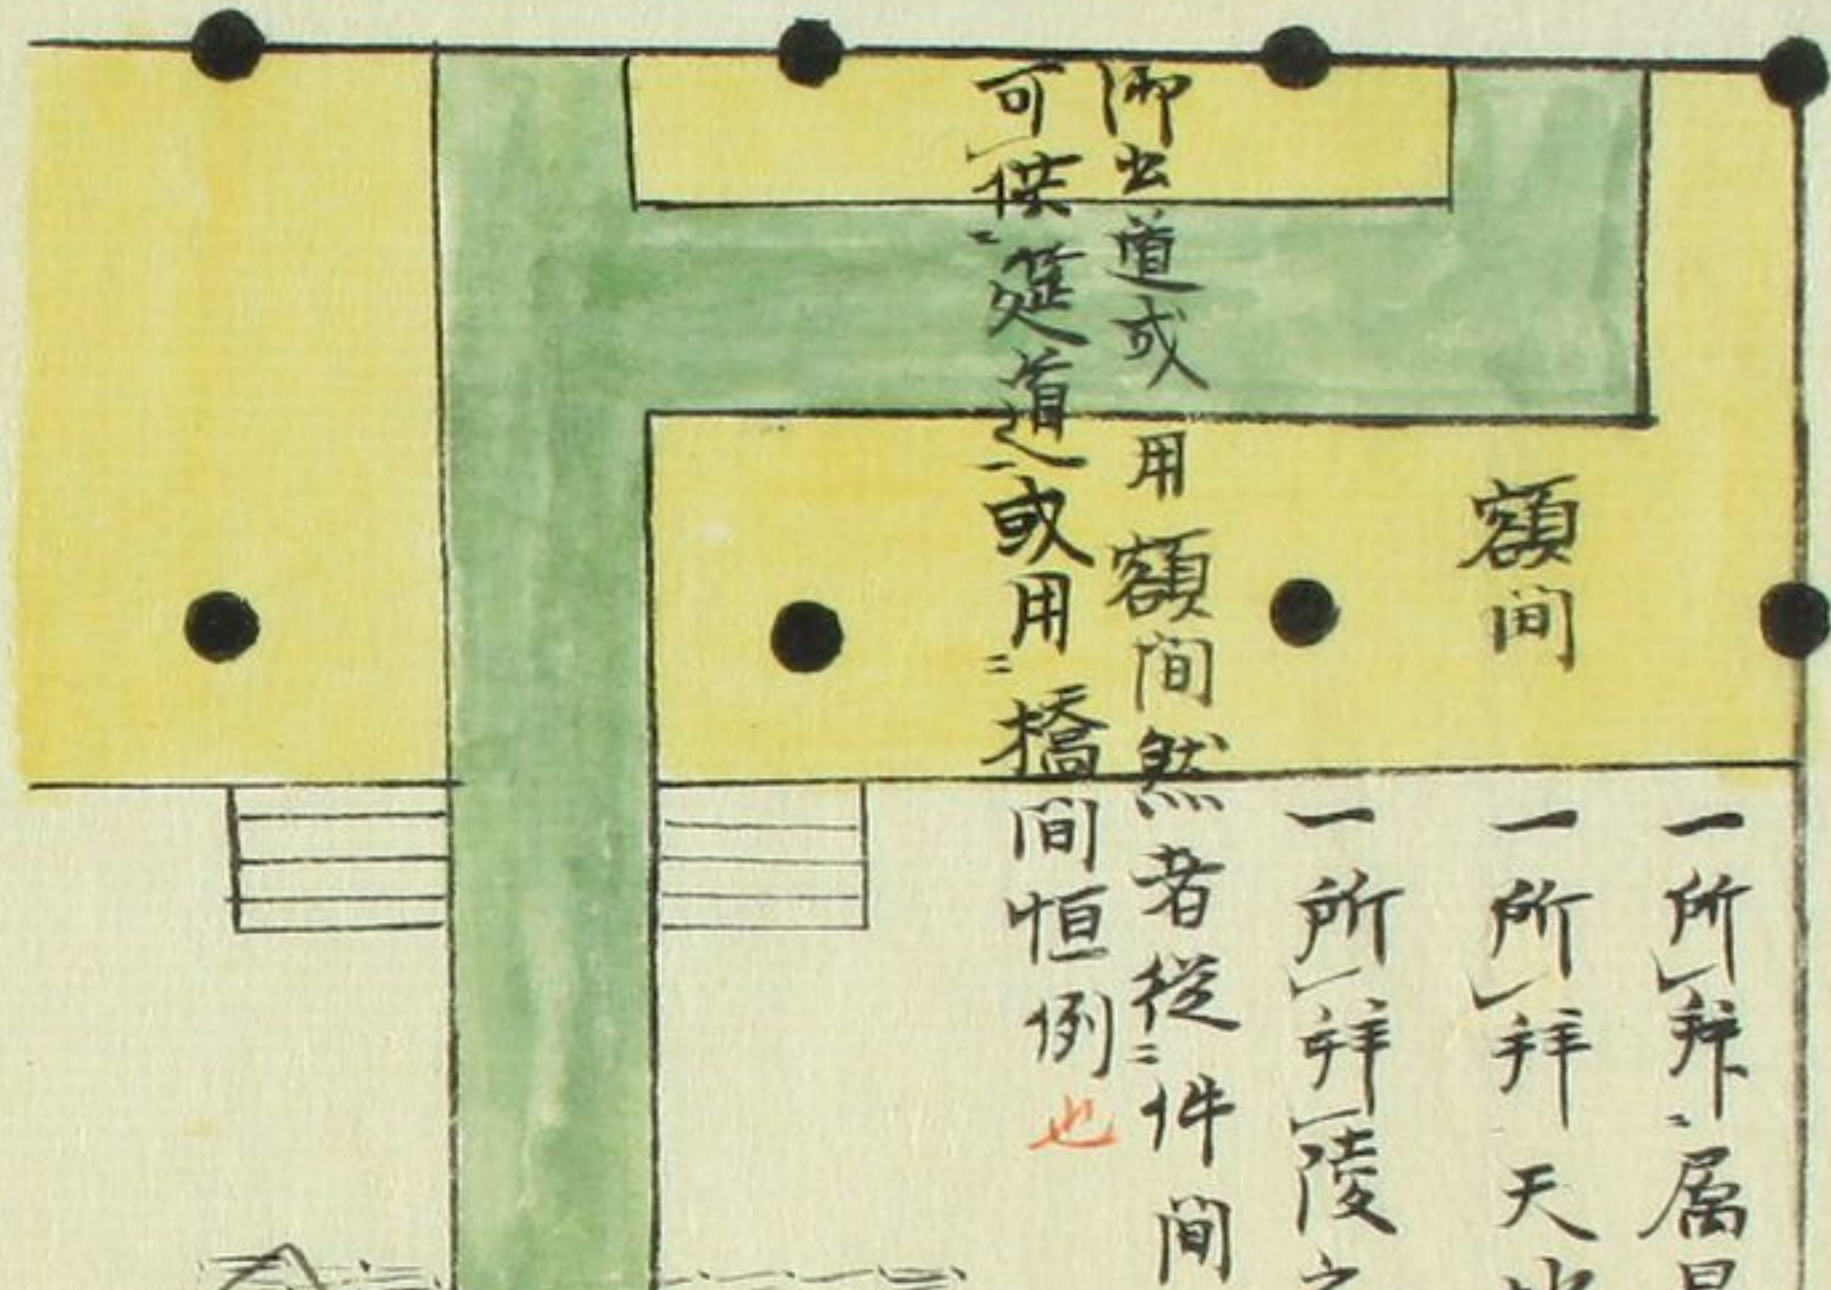 額間
一所拜属星
一所拜天地
一所拜陵之
御出道或用額間然者從件間
可供筵道之或用橋間恒例也